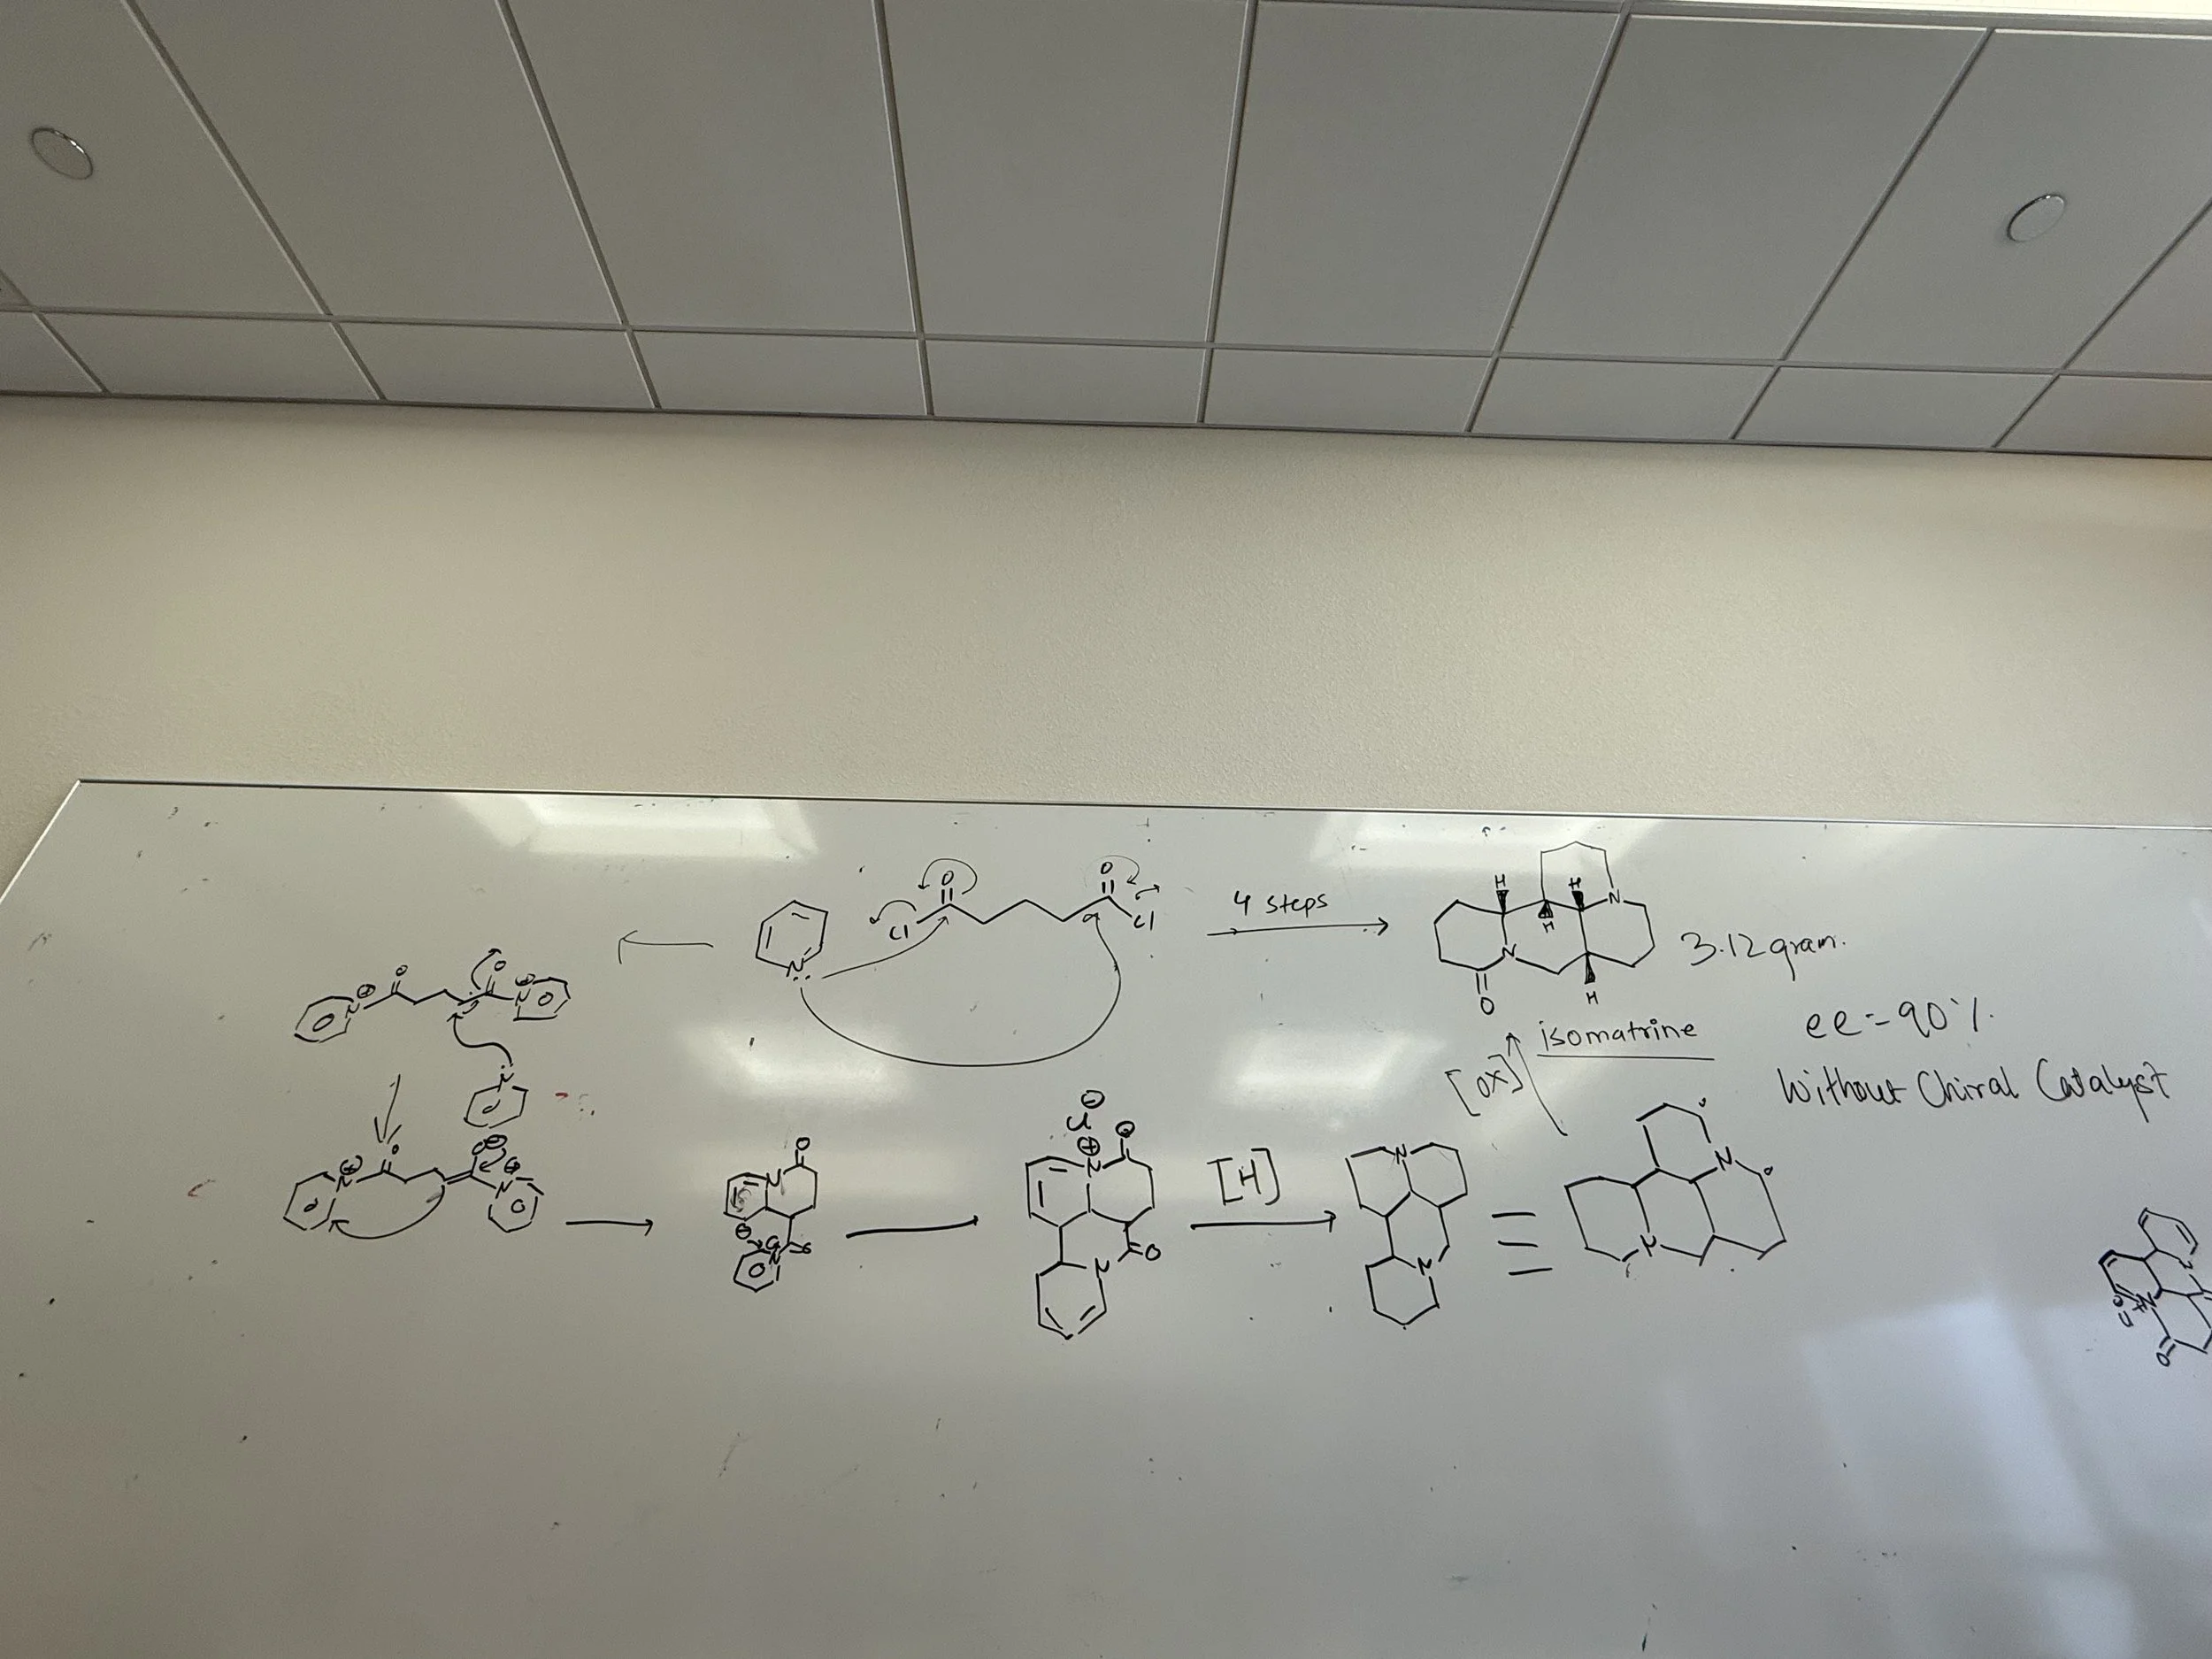 O
O
Cl
Cl
N
4 steps
H
H
N
H
N
H
O
3.12 gram.
isomatrine
ee = 90%.
Without Chiral Catalyst
[OX]
O
N
⊕
O
N
⊕
N
N
⊕
O
O⊖
N
⊕
O
N
⊖
N
O
Cl⊖
⊕
N
O
O
N
[H]
N
N
N
N
N
O